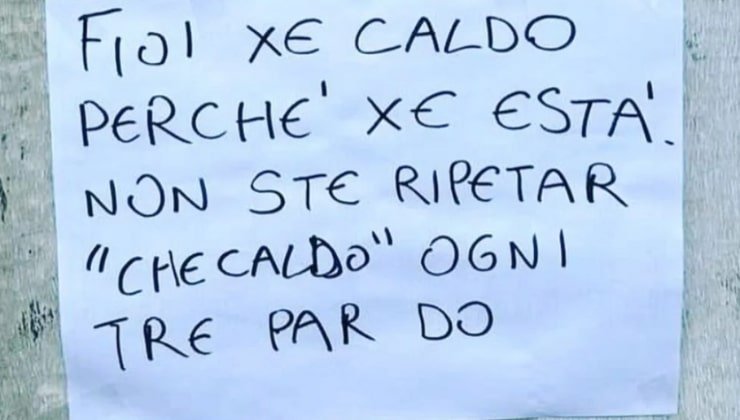 FIOI XE CALDO
PERCHE' XE ESTA'.
NON STE RIPETAR
"CHECALDO" OGNI
TRE PAR DO